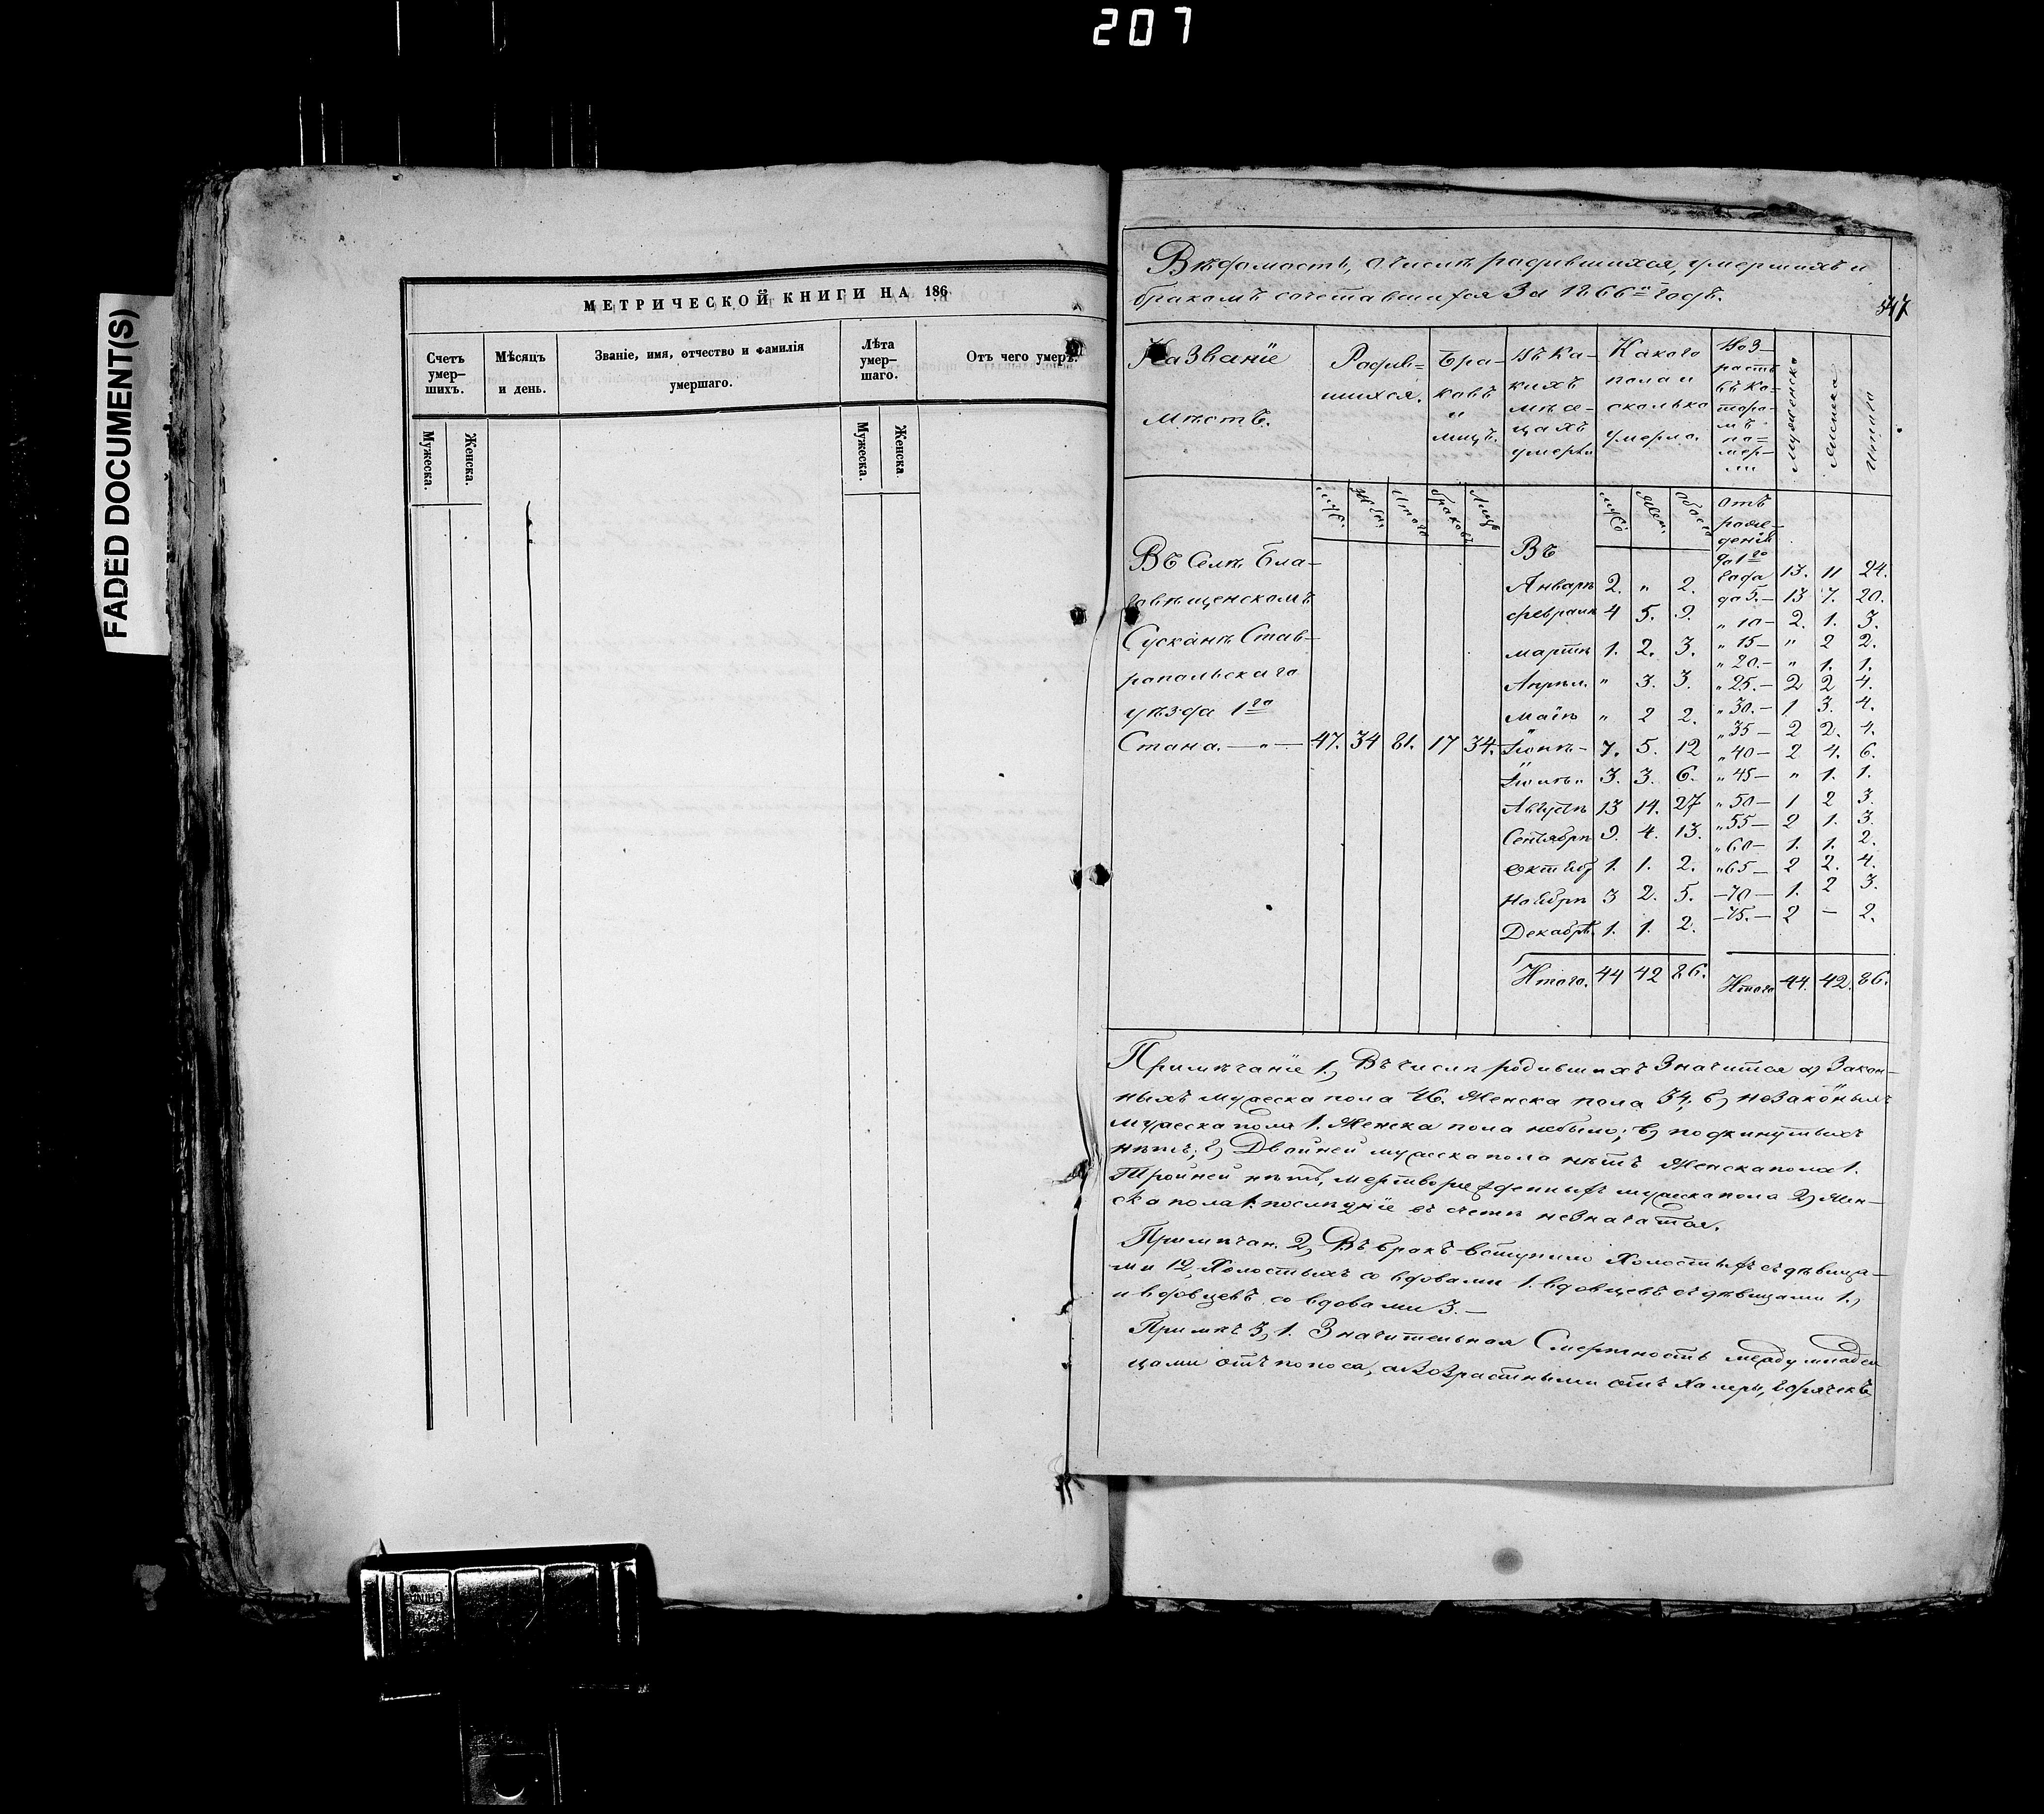 207
FADED DOCUMENT(S)
МЕТРИЧЕСКОЙ КНИГИ НА 186
Счетъ умер- шихъ.
Мѣсяцъ и день.
Званіе, имя, отчество и фамилія умершаго.
Лѣта умер- шаго.
Отъ чего умеръ.
Мужеска. Женска. Мужеска. Женска.
Вѣдомость, о числѣ родившихся, умершихъ и
бракомъ сочетавшихся За 1866й годъ.
547
Названіе мѣстъ.
Родив= шихся.
Бра- ковъ и лицъ.
Въ ка- кихъ мѣся- цахъ умерли
Какого пола и сколько умерло.
Воз- растъ въ ко- торо- мъ по= мер- ли
Мужескаго
Женска
Итого
муж. Жен. Итого браковъ Лицъ
муж Жен. обоего
Отъ рож- денія до 1го года 13. 11 24.
Въ
Въ Селѣ Бла-
говѣщенскомъ
Сусканѣ Став-
ропольскаго
уѣзда 1го
Стана. — „ — 47. 34 81. 17 34.
Январѣ 2. „ 2.
Февралѣ 4 5. 9.
Мартѣ 1. 2. 3.
Апрѣл. „ 3. 3.
Маіѣ „ 2 2.
Іюнѣ - 7. 5. 12
Іюлѣ „ 3. 3. 6.
Августѣ 13 14. 27
Сентябрѣ 9. 4. 13.
Октябр 1. 1. 2.
Ноябрѣ 3 2. 5.
Декабрѣ. 1. 1. 2.
Итого. 44 42 86.
до 5. - 13 7. 20.
„ 10 - 2. 1. 3.
„ 15 - „ 2 2.
„ 20. - „ 1. 1.
„ 25. - 2 2 4.
„ 30. - 1 3. 4.
„ 35 - 2 2. 4.
„ 40 - 2 4. 6.
„ 45 - „ 1. 1.
„ 50 - 1 2 3.
„ 55 - 2 1. 3.
„ 60 - 1. 1. 2.
„ 65 - 2 2. 4.
- 70 - 1. 2 3.
- 75. - 2 - 2.
Итого 44. 42. 86.
Примѣчаніе 1, Въ числѣ родившихъ Значится а) Закон-
ныхъ мужеска пола 46. Женска пола 34; б) незаконныхъ
мужеска пола 1. Женска пола небыло; в) подкинутыхъ
нѣтъ; г) Двойней мужеска пола нѣтъ Женска пола 1.
Тройней нѣтъ, мертворожденныхъ мужеска пола 2, Жен-
ска пола 1. послѣдніе въ счетъ незначатся.
Примѣчан. 2, Въ бракъ вступило Холостыхъ съ дѣвица-
ми 12, Холостыхъ со вдовами 1. вдовцевъ съ дѣвицами 1,
и вдовцевъ со вдовами 3. —
Примѣч 3, 1. Значительная Смертность между младен
цами отъ поноса, а возрастными отъ Холеры, горячекъ